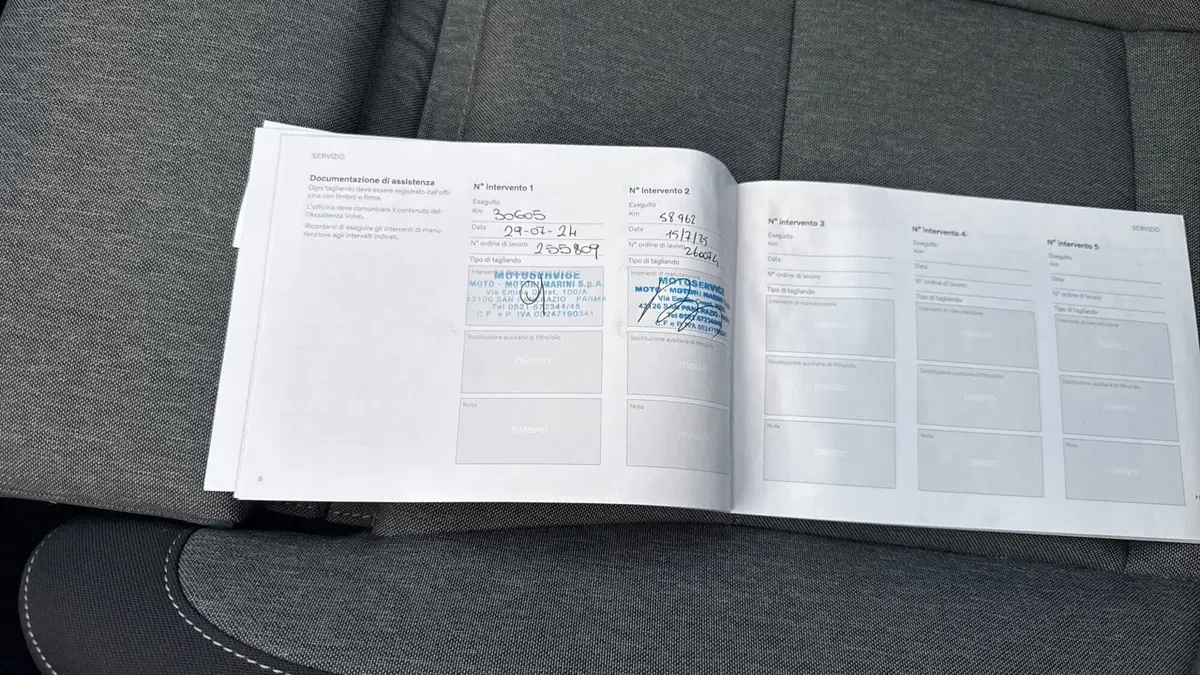 SERVIZIO
Documentazione di assistenza
Ogni tagliando deve essere registrato dall'offi-
cina con timbro e firma.
L'officina deve comunicare il contenuto del-
l'Assistenza Volvo.
Ricordarsi di eseguire gli interventi di manu-
tenzione agli intervalli indicati.
6
N° intervento 1
Eseguito
Km 30605
Data 29-07-24
N° ordine di lavoro 255809
Tipo di tagliando
MOTOSERVICE
MOTO - MOTORI MARINI S.p.A.
Via Emilia Ovest, 100/A
43100 SAN PANCRAZIO - PARMA
Tel 0521 672344/45
C.F. e P. IVA 00247190341
Sostituzione ausiliaria di filtro/olio
TIMBRO
Note
TIMBRO
N° intervento 2
Eseguito
Km 58962
Data 15/7/25
N° ordine di lavoro 260074
Tipo di tagliando
Interventi di manutenzione
MOTOSERVICE
MOTO - MOTORI MARINI
Via Emilia
43126 SAN PANCRAZIO
Tel 0521
C.F. e P. IVA 00247190
Sostituzione ausiliaria di filtro/olio
TIMBRO
Note
TIMBRO
N° intervento 3
Eseguito
Km
Data
N° ordine di lavoro
Tipo di tagliando
Interventi di manutenzione
TIMBRO
Sostituzione ausiliaria di filtro/olio
TIMBRO
Note
TIMBRO
N° intervento 4
Eseguito
Km
Data
N° ordine di lavoro
Tipo di tagliando
Interventi di manutenzione
TIMBRO
Sostituzione ausiliaria di filtro/olio
TIMBRO
Note
TIMBRO
SERVIZIO
N° intervento 5
Eseguito
Km
Data
N° ordine di lavoro
Tipo di tagliando
Interventi di manutenzione
TIMBRO
Sostituzione ausiliaria di filtro/olio
TIMBRO
Note
TIMBRO